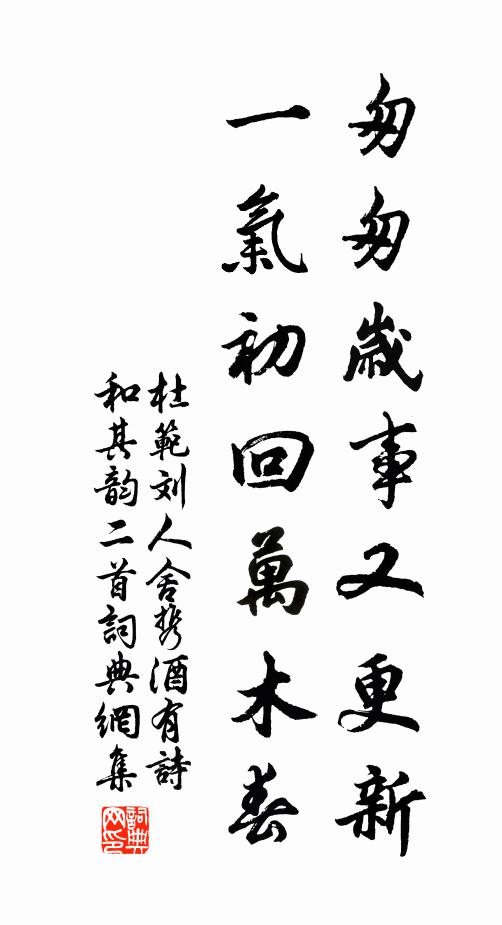 匆匆歲事又更新
一氣初回萬木春
杜範刘人舍携酒有詩
和其韵二首詞典網集
詞典
网印